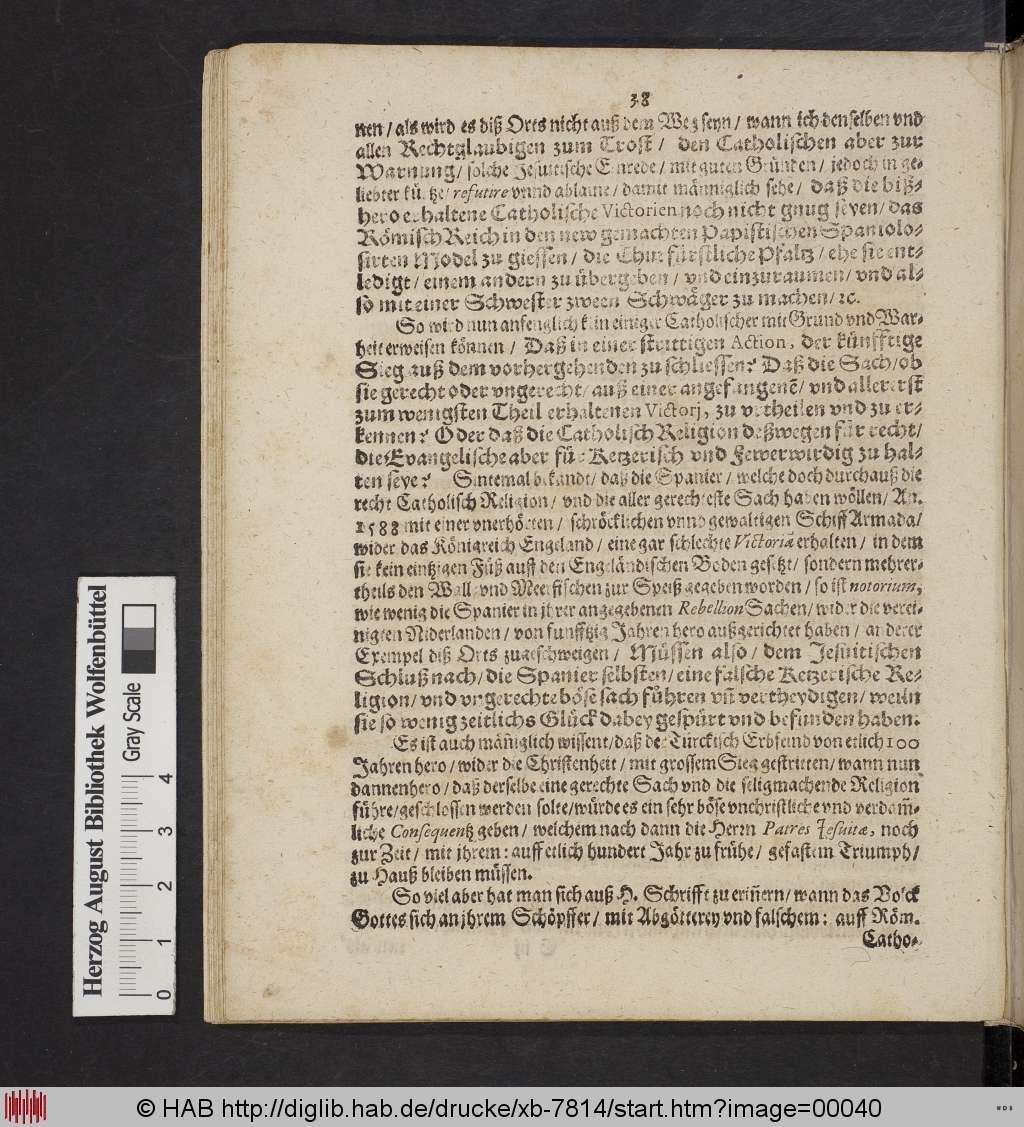 38
nen / als wird es diß Orts nicht auß dem Weg seyn / wann ich denselben vnd
allen Rechtglaubigen zum Trost / den Catholischen aber zur
Warnung / solche Jesuitische Einrede / mit guten Gründen / jedoch in ge-
liebter kürtze / refutire vnnd ablaine / damit männiglich sehe / daß die biß-
hero erhaltene Catholische Victorien noch nicht gnug seyen / das
Römisch Reich in den new gemachten Papistischen Spaniolo-
sirten Model zu giessen / die Churfürstliche Pfaltz / ehe sie ent-
ledigt / einem andern zu übergeben / vnd einzuraumen / vnd al-
so mit einer Schwester zween Schwäger zu machen / ꝛc.
So wird nun anfenglich kein einiger Catholischer mit Grund vnd War-
heit erweisen können / Daß in einer strittigen Action, der künfftige
Sieg auß dem vorhergehenden zu schliessen? Daß die Sach / ob
sie gerecht oder vngerecht / auß einer angefangenē / vnd allererst
zum wenigsten Theil erhaltenen Victorj, zu vrtheilen vnd zu er-
kennen? Oder daß die Catholisch Religion deßwegen für recht /
die Evangelische aber für Ketzerisch vnd Fewerwirdig zu hal-
ten seye? Sintemal bekandt / daß die Spanier / welche doch durchauß die
recht Catholisch Religion / vnd die aller gerechteste Sach haben wöllen / An.
1588 mit einer vnerhörten / schröcklichen vnnd gewaltigen Schiff Armada /
wider das Königreich Engeland / eine gar schlechte Victoriā erhalten / in dem
sie kein eintzigen Füß auff den Engeländischen Boden gesetzt / sondern mehrer-
theils den Wall- vnd Meerfischen zur Speiß gegeben worden / so ist notorium,
wie wenig die Spanier in jhrer angegebenen Rebellion Sachen / wider die verei-
nigten Niderlanden / von funfftzig Jahren hero außgerichtet haben / anderer
Exempel diß Orts zugeschweigen / Müssen also / dem Jesuitischen
Schluß nach / die Spanier selbsten / eine falsche Ketzerische Re-
ligion / vnd vngerechte böse sach führen vn̄ vertheydigen / weiln
sie so wenig zeitlichs Glück dabey gespürt vnd befunden haben.
Es ist auch män̄iglich wissent / daß der Türckisch Erbfeind von etlich 100
Jahren hero / wider die Christenheit / mit grossem Sieg gestritten / wann nun
dannenhero / daß derselbe eine gerechte Sach vnd die seligmachende Religion
führe / geschlossen werden solte / würde es ein sehr böse vnchristliche vnd verdam̄-
liche Consequentz geben / welchem nach dann die Herrn Patres Jesuitæ, noch
zur Zeit / mit jhrem: auff etlich hundert Jahr zu frühe / gefastem Triumph /
zu Hauß bleiben müssen.
So viel aber hat man sich auß H. Schrifft zu erin̄ern / wann das Volck
Gottes sich an jhrem Schöpffer / mit Abgötterey vnd falschem: auff Röm.
Catho-
Herzog August Bibliothek Wolfenbüttel
Gray Scale
0 1 2 3 4
© HAB http://diglib.hab.de/drucke/xb-7814/start.htm?image=00040